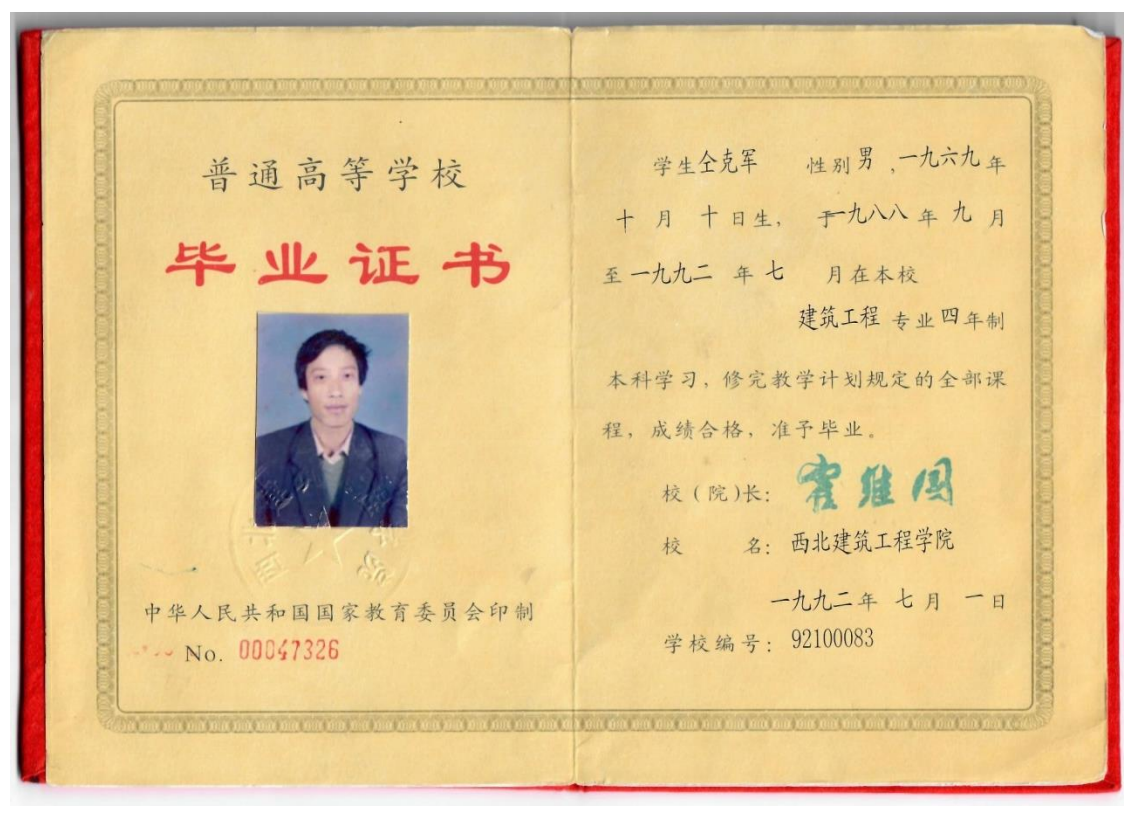 普通高等学校
毕业证书
中华人民共和国国家教育委员会印制
No. 00047326
学生仝克军 性别男，一九六九年
十月十日生，于一九八八年九月
至一九九二年七月在本校
建筑工程专业四年制
本科学习，修完教学计划规定的全部课
程，成绩合格，准予毕业。
校(院)长：霍维国
校名：西北建筑工程学院
一九九二年七月一日
学校编号：92100083